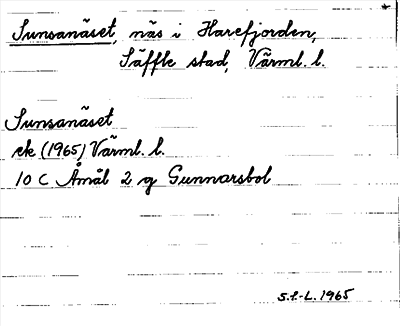 Sunsanäset, näs i Harefjorden,
Säffle stad, Värml. l.
Sunsanäset
ek (1965) Värml. l.
10 C Åmål 2 g Gunnarsbol
S.F.-L. 1965